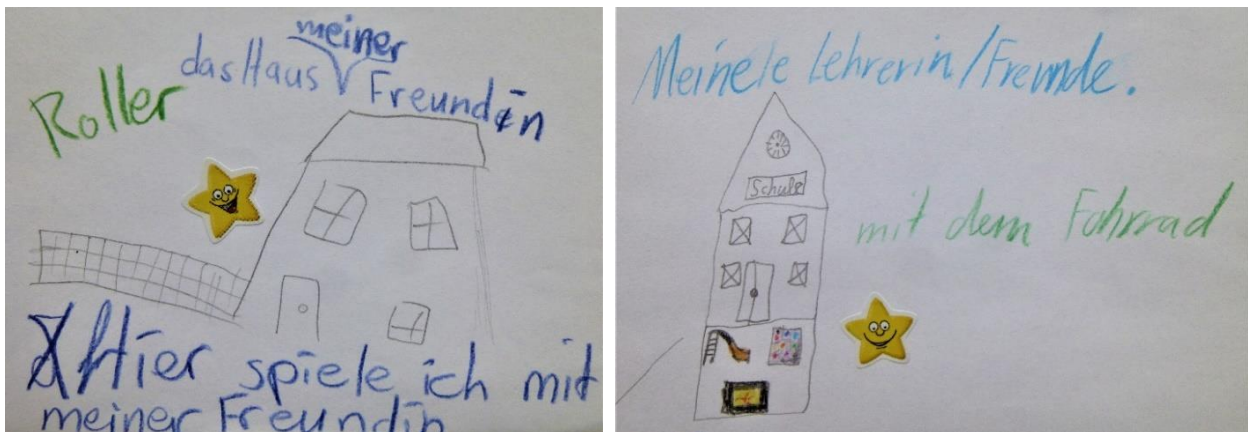 meiner
das Haus
Freundin
Roller
Hier spiele ich mit
meiner Freundin
Meinele Lehrerin/Freunde.
Schule
mit dem Fahrrad